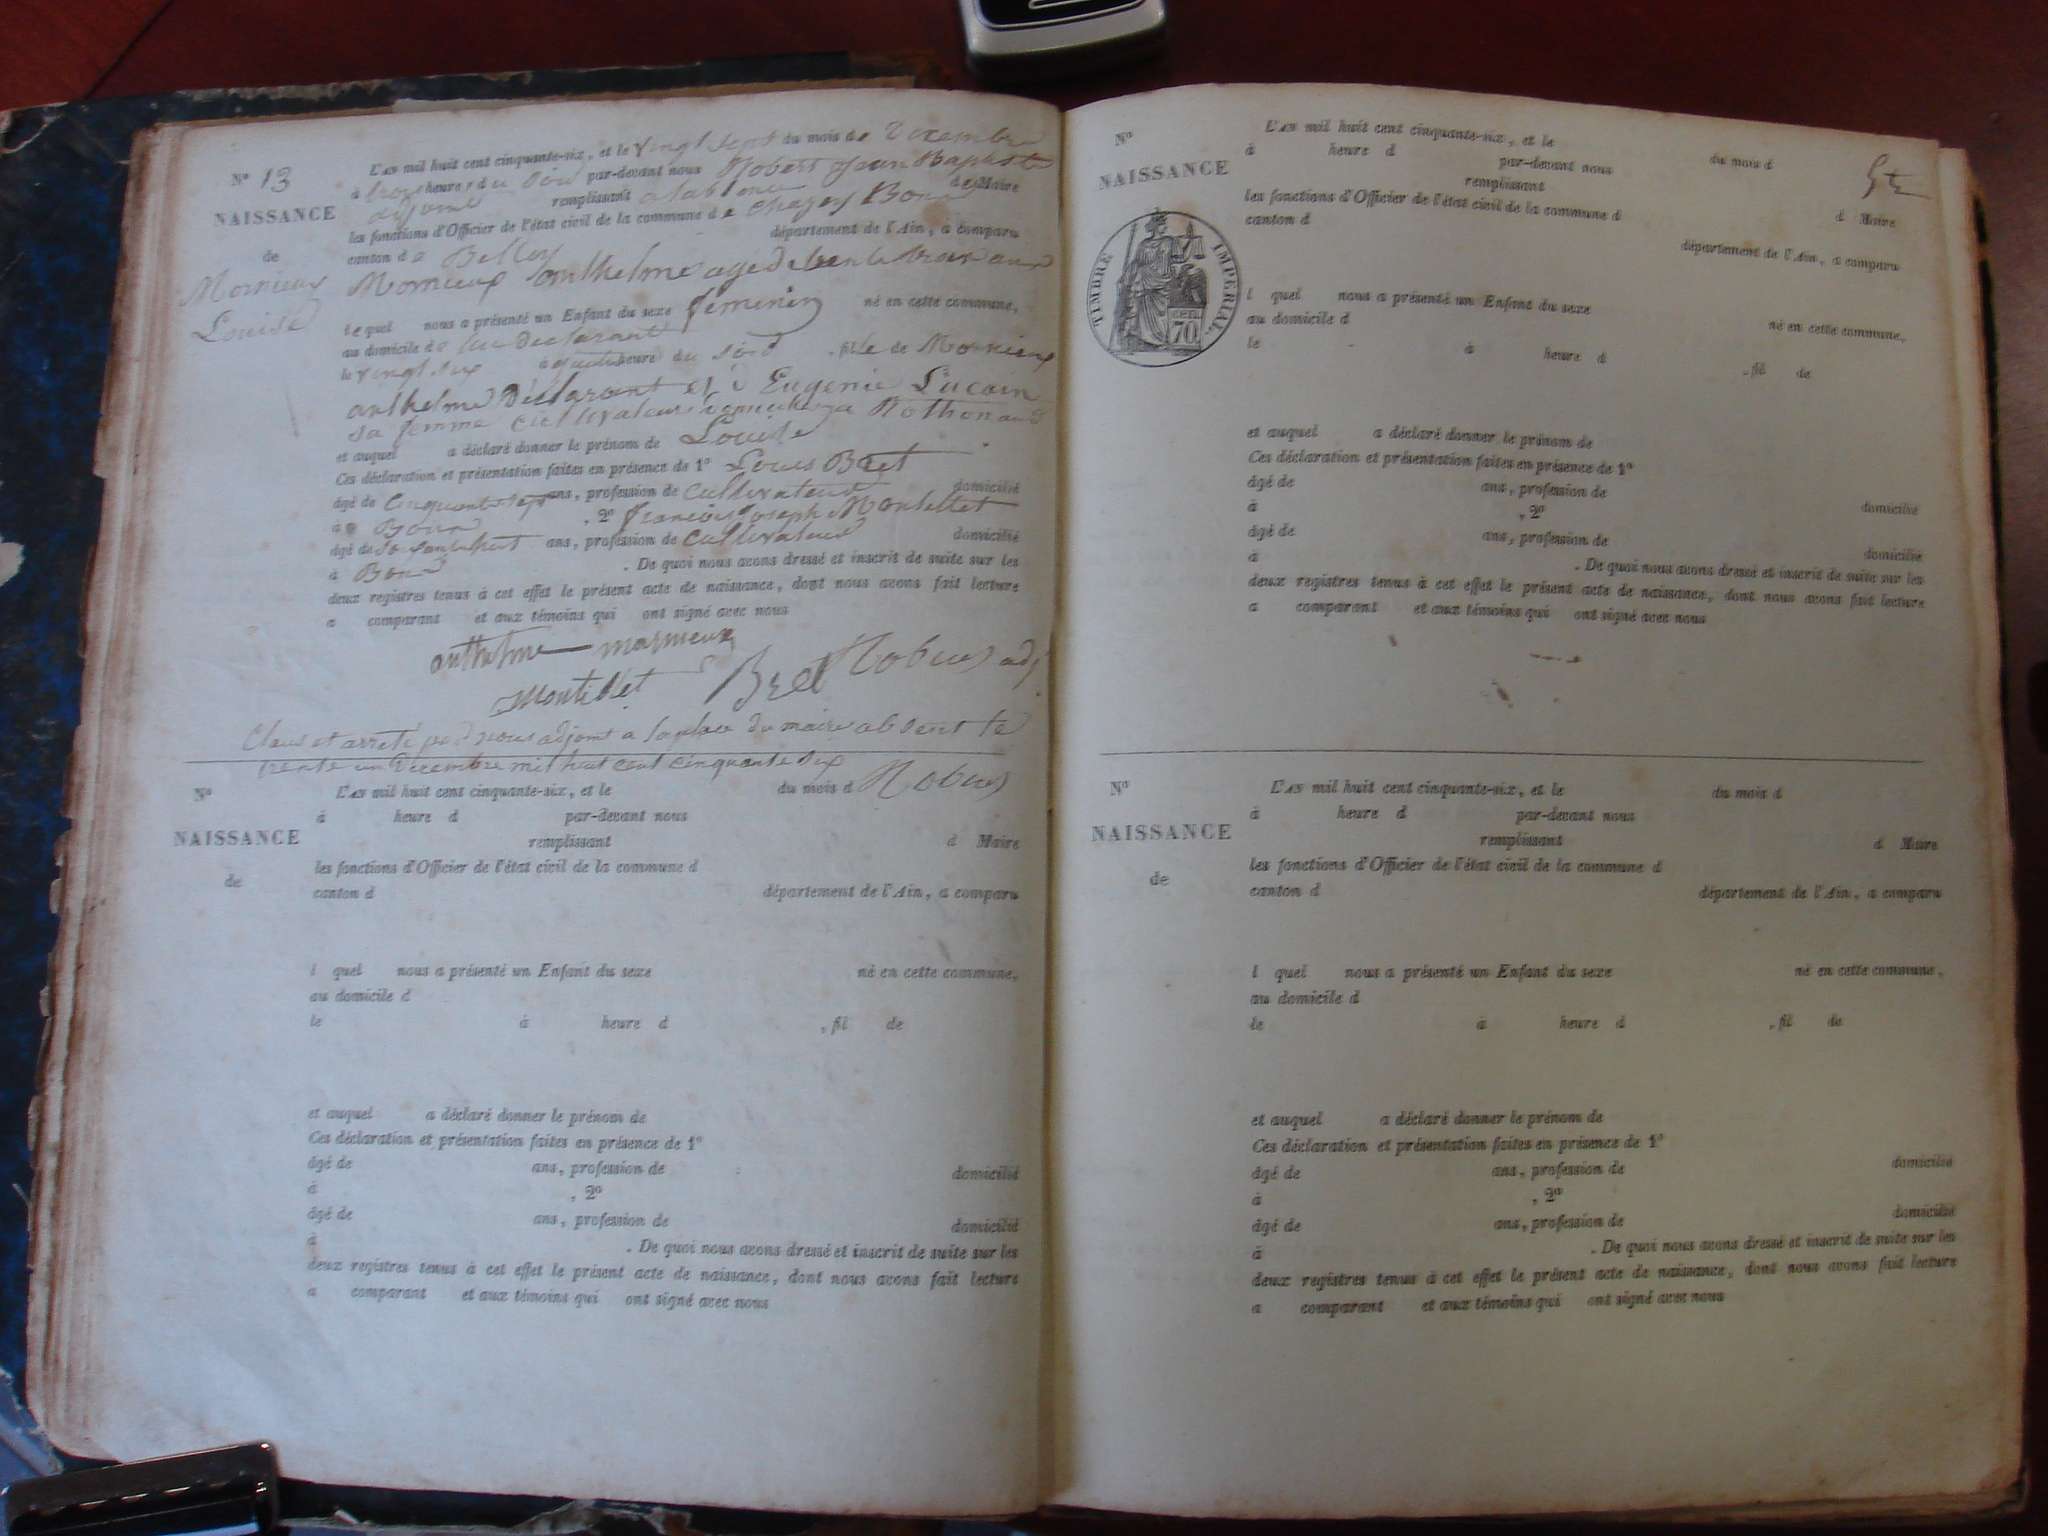 N° 13
NAISSANCE
de
Mornieux
Louise
L'AN mil huit cent cinquante-six, et le vingt sept du mois de Decembre
à trois heures du soir par-devant nous Robert Jean Baptiste
adjoint remplissant de Maire
les fonctions d'Officier de l'état civil de la commune de Chazey Bons
canton de Belley département de l'Ain, a comparu
Mornieux anthelme agé de trente trois ans
lequel nous a présenté un Enfant du sexe feminin né en cette commune,
au domicile du declarant
le vingt six à heure du soir , fille de Mornieux
anthelme déclarant et d Eugenie Lucain
sa femme cultivateurs Rothonand
et auquel a déclaré donner le prénom de Louise
Ces déclaration et présentation faites en présence de 1° Louis Bret
âgé de cinquante sept ans, profession de cultivateur domicilié
à Bons , 2° françois Joseph Montillet
âgé de ans, profession de cultivateur domicilié
à Bons . De quoi nous avons dressé et inscrit de suite sur les
deux registres tenus à cet effet le présent acte de naissance, dont nous avons fait lecture
a comparant et aux témoins qui ont signé avec nous
anthelme mornieux
Montillet Bret adj
Clos et arrêté par nous adjoint a la place du maire absent le
trente un Decembre mil huit cent cinquante six
N°
NAISSANCE
de
L'AN mil huit cent cinquante-six, et le du mois d
à heure d par-devant nous
remplissant d Maire
les fonctions d'Officier de l'état civil de la commune d
canton d département de l'Ain, a comparu
l quel nous a présenté un Enfant du sexe né en cette commune,
au domicile d
le à heure d , fil de
et auquel a déclaré donner le prénom de
Ces déclaration et présentation faites en présence de 1°
âgé de ans, profession de domicilié
à , 2°
âgé de ans, profession de domicilié
à . De quoi nous avons dressé et inscrit de suite sur les
deux registres tenus à cet effet le présent acte de naissance, dont nous avons fait lecture
a comparant et aux témoins qui ont signé avec nous
N°
NAISSANCE
TIMBRE IMPÉRIAL
CEN. 70
L'AN mil huit cent cinquante-six, et le du mois d
à heure d par-devant nous
remplissant d Maire
les fonctions d'Officier de l'état civil de la commune d
canton d département de l'Ain, a comparu
l quel nous a présenté un Enfant du sexe né en cette commune,
au domicile d
le à heure d , fil de
et auquel a déclaré donner le prénom de
Ces déclaration et présentation faites en présence de 1°
âgé de ans, profession de domicilié
à , 2°
âgé de ans, profession de domicilié
à . De quoi nous avons dressé et inscrit de suite sur les
deux registres tenus à cet effet le présent acte de naissance, dont nous avons fait lecture
a comparant et aux témoins qui ont signé avec nous
N°
NAISSANCE
de
L'AN mil huit cent cinquante-six, et le du mois d
à heure d par-devant nous
remplissant d Maire
les fonctions d'Officier de l'état civil de la commune d
canton d département de l'Ain, a comparu
l quel nous a présenté un Enfant du sexe né en cette commune,
au domicile d
le à heure d , fil de
et auquel a déclaré donner le prénom de
Ces déclaration et présentation faites en présence de 1°
âgé de ans, profession de domicilié
à , 2°
âgé de ans, profession de domicilié
à . De quoi nous avons dressé et inscrit de suite sur les
deux registres tenus à cet effet le présent acte de naissance, dont nous avons fait lecture
a comparant et aux témoins qui ont signé avec nous